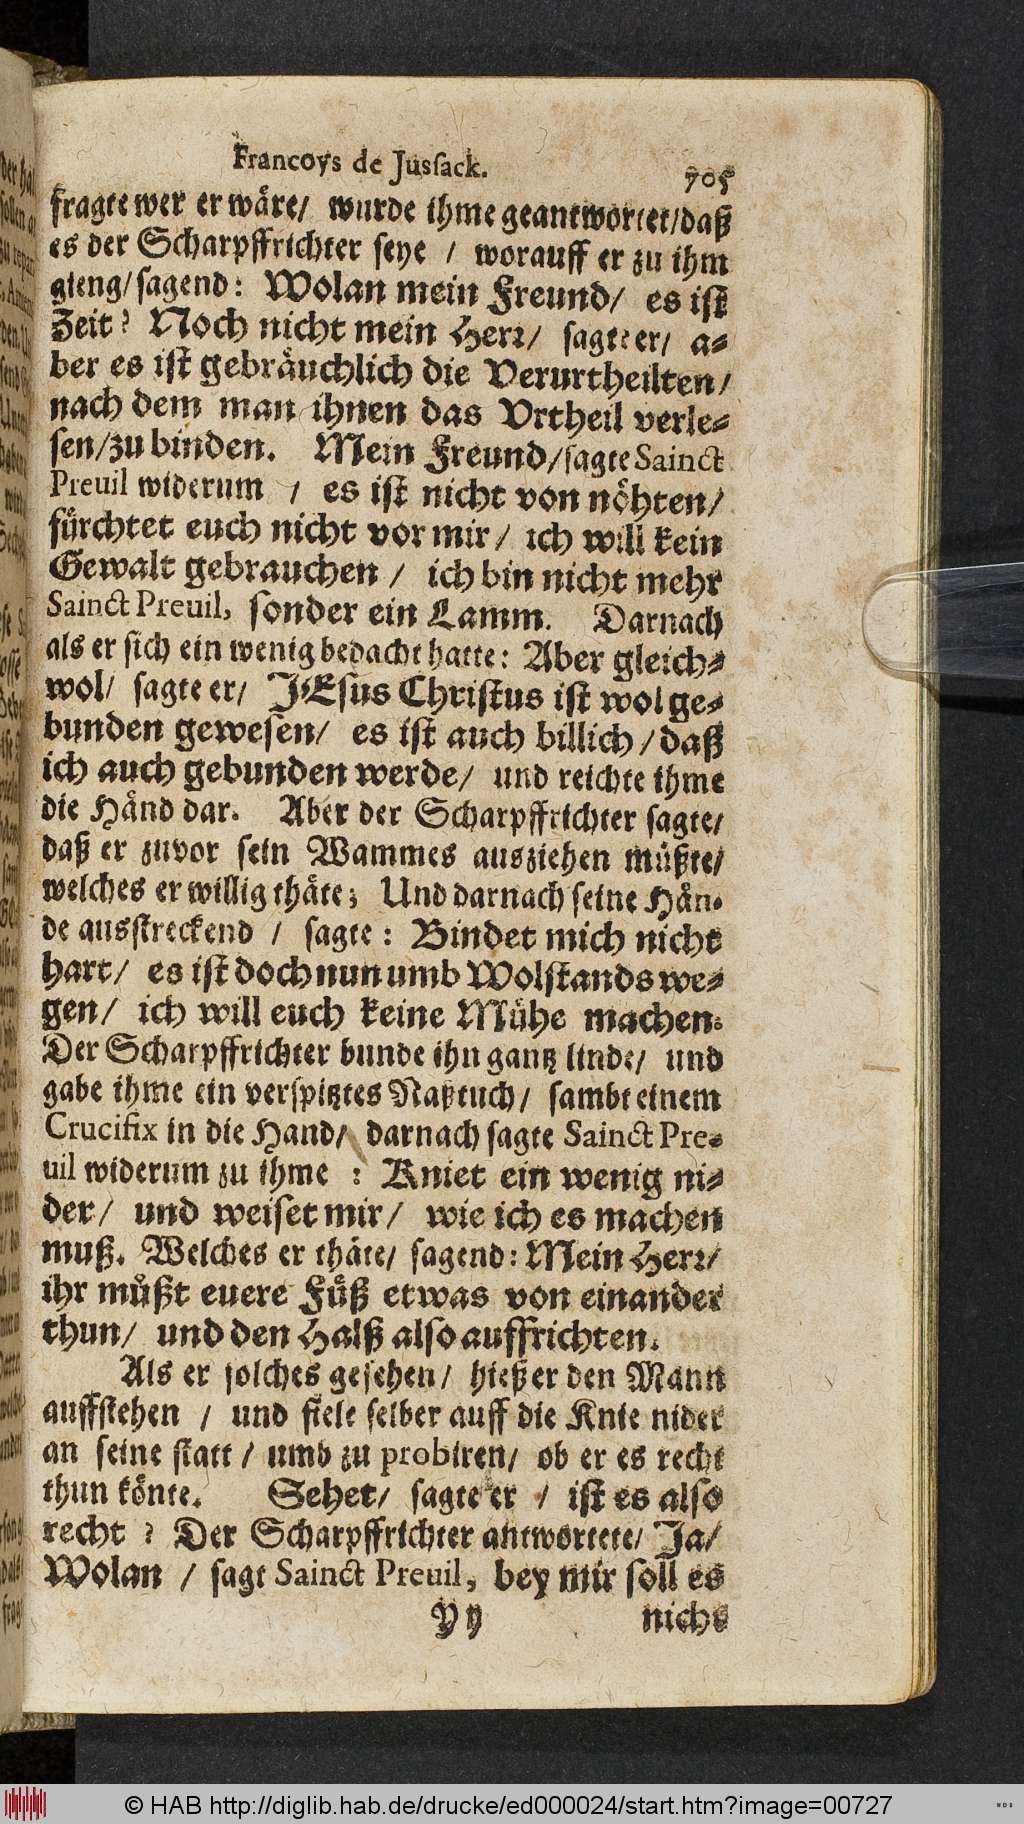 Francoys de Jussack.
705
fragte wer er wäre/ wurde ihme geantwortet/daß
es der Scharpffrichter seye / worauff er zu ihm
gieng/sagend: Wolan mein Freund/ es ist
Zeit? Noch nicht mein Herr/ sagte er/ a-
ber es ist gebräuchlich die Verurtheilten/
nach dem man ihnen das Vrtheil verle-
sen/zu binden. Mein Freund/sagte Sainct
Preuil widerum / es ist nicht von nöhten/
fürchtet euch nicht vor mir/ ich will kein
Gewalt gebrauchen / ich bin nicht mehr
Sainct Preuil, sonder ein Lamm. Darnach
als er sich ein wenig bedacht hatte: Aber gleich-
wol/ sagte er/ JEsus Christus ist wol ge-
bunden gewesen/ es ist auch billich/daß
ich auch gebunden werde/ und reichte ihme
die Händ dar. Aber der Scharpffrichter sagte/
daß er zuvor sein Wammes ausziehen müßte/
welches er willig thäte; Und darnach seine Hän-
de ausstreckend / sagte: Bindet mich nicht
hart/ es ist doch nun umb Wolstands we-
gen/ ich will euch keine Mühe machen.
Der Scharpffrichter bunde ihn gantz linde/ und
gabe ihme ein verspitztes Naßtuch/ sambt einem
Crucifix in die Hand/ darnach sagte Sainct Pre-
uil widerum zu ihme : Kniet ein wenig ni-
der/ und weiset mir/ wie ich es machen
muß. Welches er thäte/ sagend: Mein Herr/
ihr müßt euere Füß etwas von einander
thun/ und den Halß also auffrichten.
Als er solches gesehen/ hieß er den Mann
auffstehen / und fiele selber auff die Knie nider
an seine statt/ umb zu probiren/ ob er es recht
thun könte. Sehet/ sagte er / ist es also
recht ? Der Scharpffrichter antwortete/ Ja/
Wolan / sagt Sainct Preuil, bey mir soll es
Yy
nichs
© HAB http://diglib.hab.de/drucke/ed000024/start.htm?image=00727